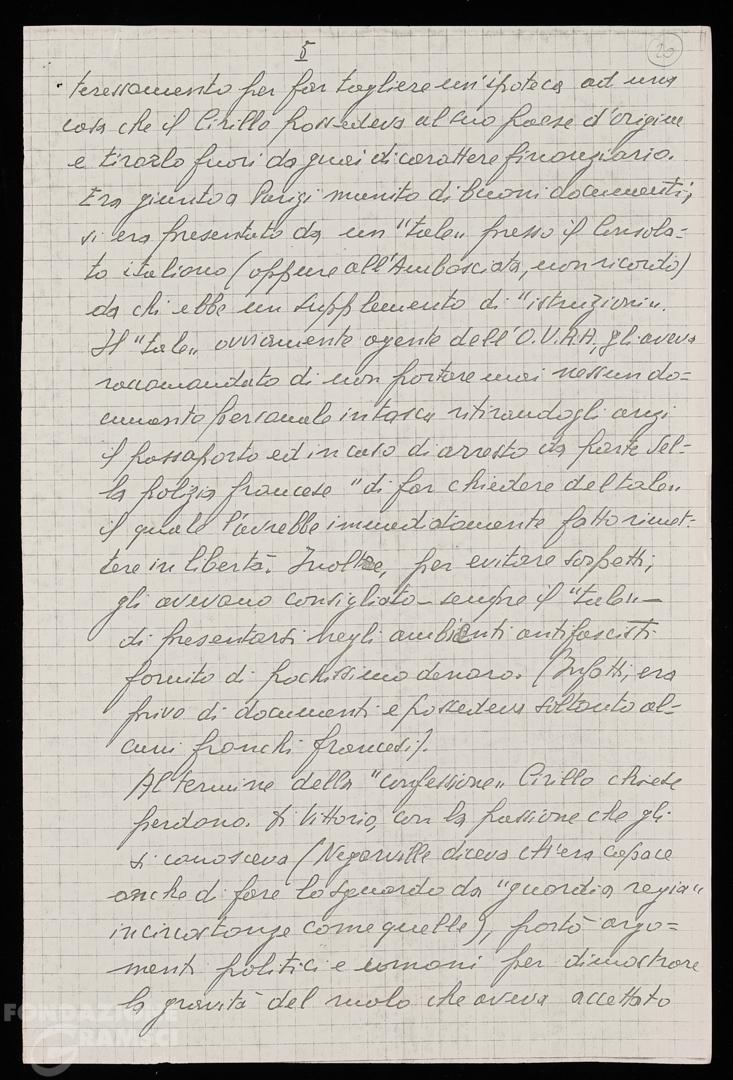 5
20
teressamento per far togliere un'ipoteca ad una
casa che il Cirillo possedeva al suo paese d'origine
e tirarlo fuori da guai di carattere finanziario.
Era giunto a Parigi munito di buoni documenti,
si era presentato da un "tale" presso il Consola=
to italiano (oppure all'Ambasciata, non ricordo)
da chi ebbe un supplemento di "istruzioni".
Il "tale" ovviamente agente dell'O.V.R.A., gli aveva
raccomandato di non portare mai nessun do=
cumento personale in tasca ritirandogli anzi
il passaporto ed in caso di arresto da parte del=
la polizia francese "di far chiedere del tale"
il quale l'avrebbe immediatamente fatto rimet=
tere in libertà. Inoltre, per evitare sospetti,
gli avevano consigliato - sempre il "tale" -
di presentarsi negli ambienti antifascisti
fornito di pochissimo denaro. (Infatti, era
privo di documenti e possedeva soltanto al=
cuni franchi francesi).
Al termine della "confessione" Cirillo chiese
perdono. Di Vittorio, con la passione che gli
si conosceva (Negarville diceva ch'era capace
anche di fare lo sguardo da "guardia regia"
in circostanze come quelle), portò argo=
menti politici e umani per dimostrare
la gravità del ruolo che aveva accettato
FONDAZIONE
GRAMSCI